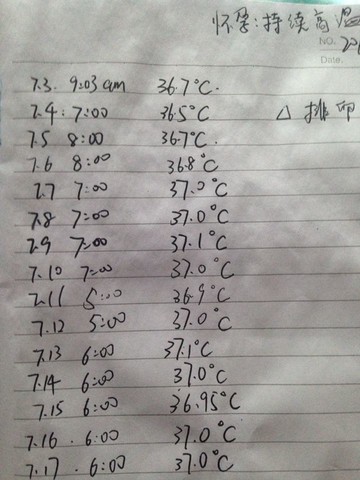 怀孕:持续高温
NO. 20
Date.
7.3. 9:03 am 36.7°C.
7.4: 7:00 36.5°C △ 排卵
7.5 8:00 36.7°C.
7.6 8:00 36.8°C
7.7 7:00 37.0°C
7.8 7:00 37.0°C
7.9 7:00 37.1°C
7.10 7:00 37.0°C
7.11 5:00 36.9°C
7.12 5:00 37.0°C
7.13 6:00 37.1°C
7.14 6:00 37.0°C
7.15 6:00 36.95°C
7.16. 6:00 37.0°C
7.17. 6:00 37.0°C